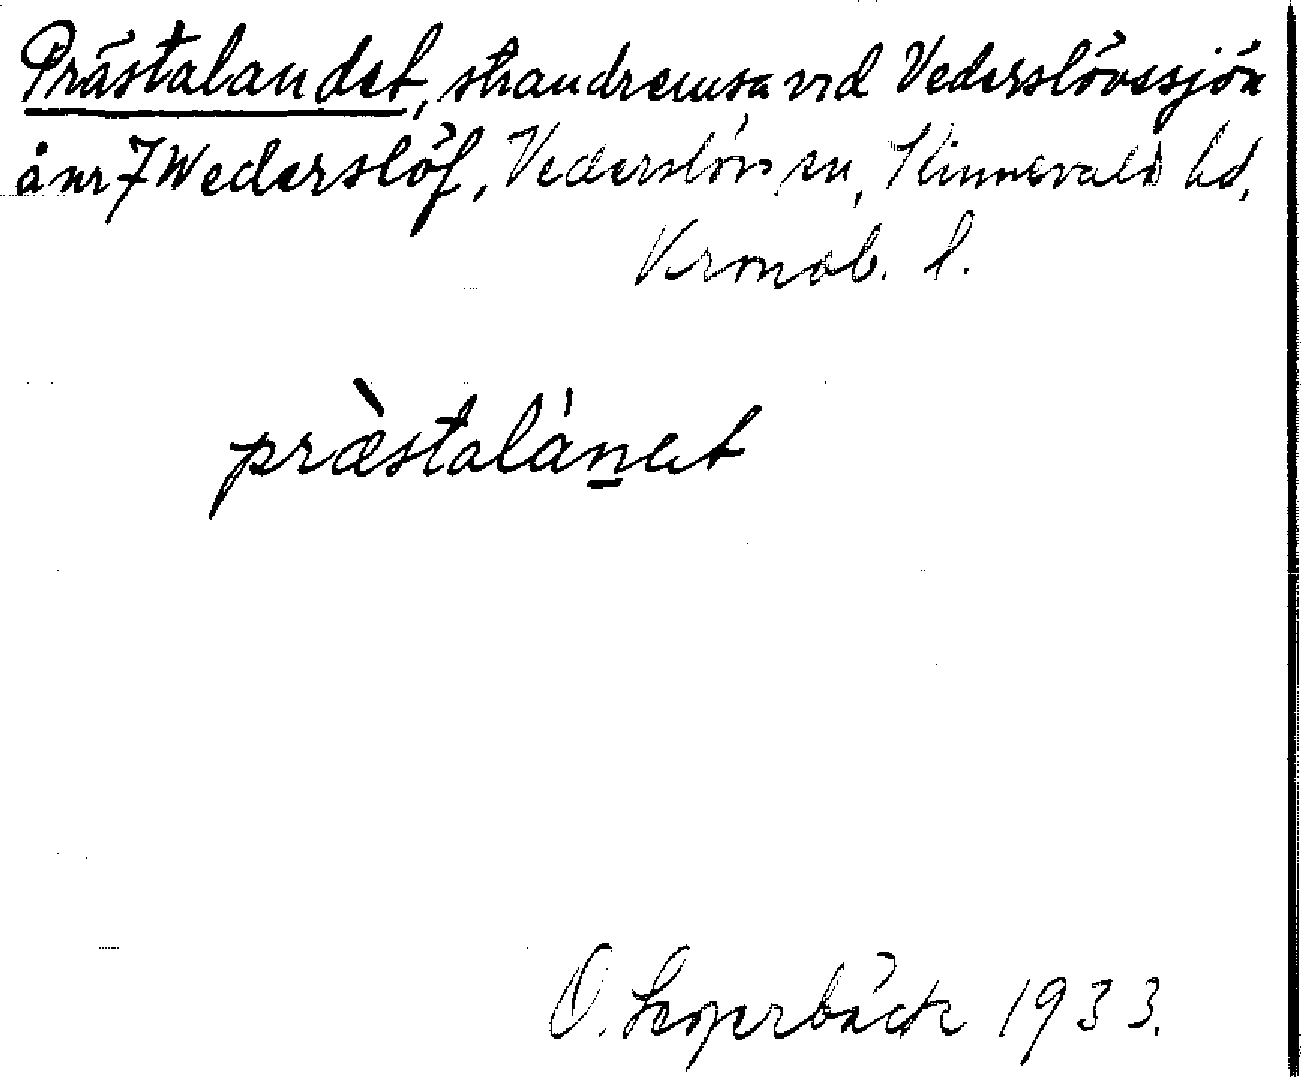 Prästalandet, strandremsa vid Vederslövssjön
å nr 7 Wederslöf, Vederslövs sn, Kinnevalds hd,
Kronob. l.
præ̀stalánet
O. Loperbäck 1933.